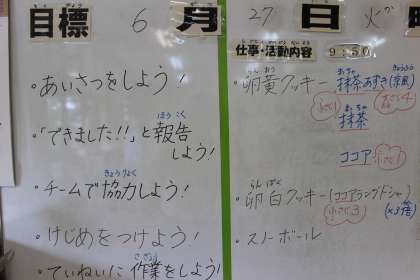 目標 6月 27日 火
仕事・活動内容 9:50
・あいさつをしよう!
・「できました!!」と報告
しよう!
・チームで協力しよう!
・けじめをつけよう!
・ていねいに作業をしよう!
・卵黄クッキー
抹茶あずき
抹茶
ココア
・卵白クッキー(ココアラングドシャ)
(×3倍)
・スノーボール